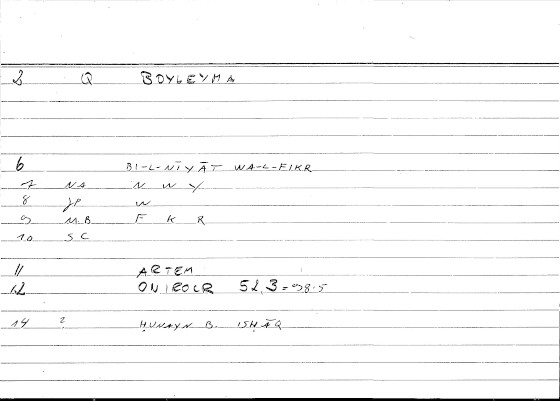 3 Q BOYLEYMA
6 BI-L-NĪYĀT WA-L-FIKR
7 NA N W Y
8 JP W
9 MB F K R
10 SC
11 ARTEM
12 ONIROCR 52,3=98.5
14 ? ḤUNAYN B. ISḤĀQ